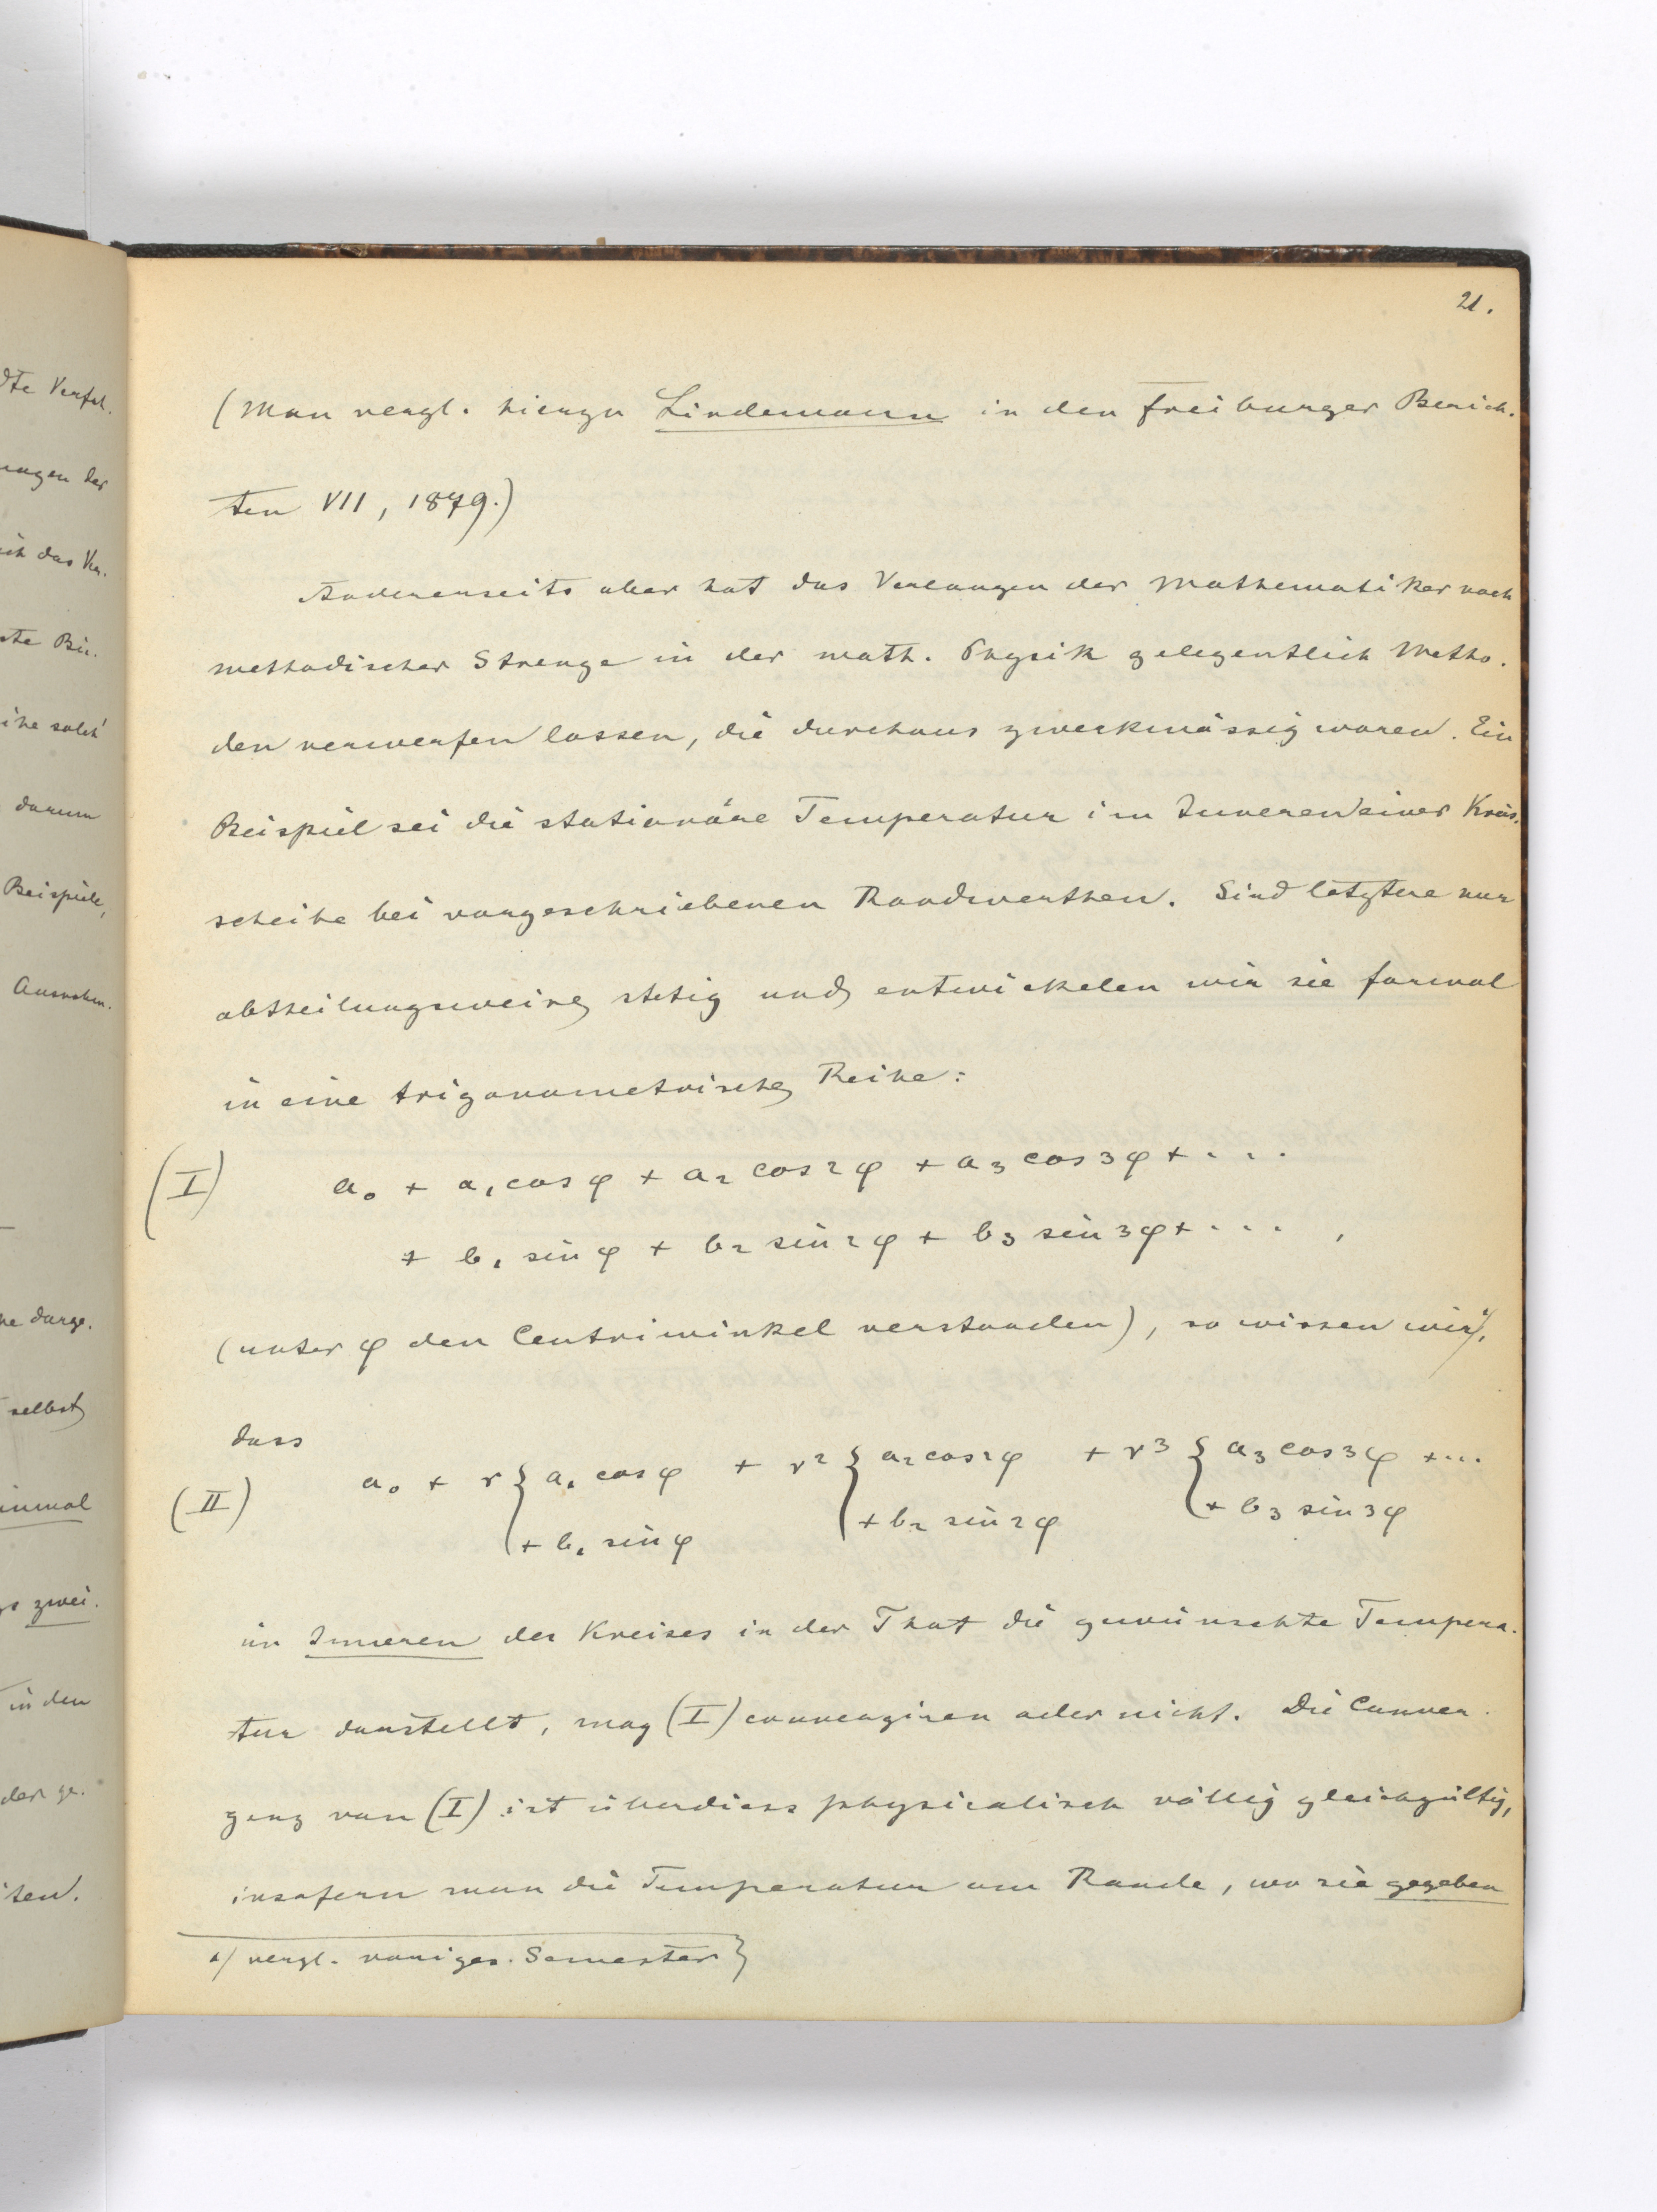 21.
(Man vergl. hierzu Lindemann in den Freiburger Berich-
ten VII, 1879.)
Andererseits aber hat das Verlangen der Mathematiker nach
methodischer Strenge in der math. Physik gelegentlich Metho-
den verwerfen lassen, die durchaus zweckmässig waren. Ein
Beispiel sei die stationäre Temperatur im Inneren einer Kreis-
scheibe bei vorgeschriebenen Randwerthen. Sind letztere nur
abtheilungsweise stetig und entwickelen wir sie formal
in eine trigonometrische Reihe:
(I) a₀ + a₁ cos φ + a₂ cos 2φ + a₃ cos 3φ + . . .
+ b₁ sin φ + b₂ sin 2φ + b₃ sin 3φ + . . . ,
(unter φ den Centriwinkel verstanden), so wissen wir,
dass
(II) a₀ + r { a₁ cos φ + r² { a₂ cos 2φ + r³ { a₃ cos 3φ + ...
+ b₁ sin φ + b₂ sin 2φ + b₃ sin 3φ
im Inneren des Kreises in der That die gewünschte Tempera-
tur darstellt, mag (I) convergiren oder nicht. Die Conver-
genz von (I) ist überdiess physicalisch völlig gleichgültig,
insofern man die Temperatur am Rande, wo sie gegeben
vergl. voriges Semester
dte Verfah-
ungen der
ich das Ver-
ste Bei-
ihe solch'
darum
Beispiele,
Ausnahm-
ne darge-
selbst
inmal
zwei-
in den
der ge-
ten.